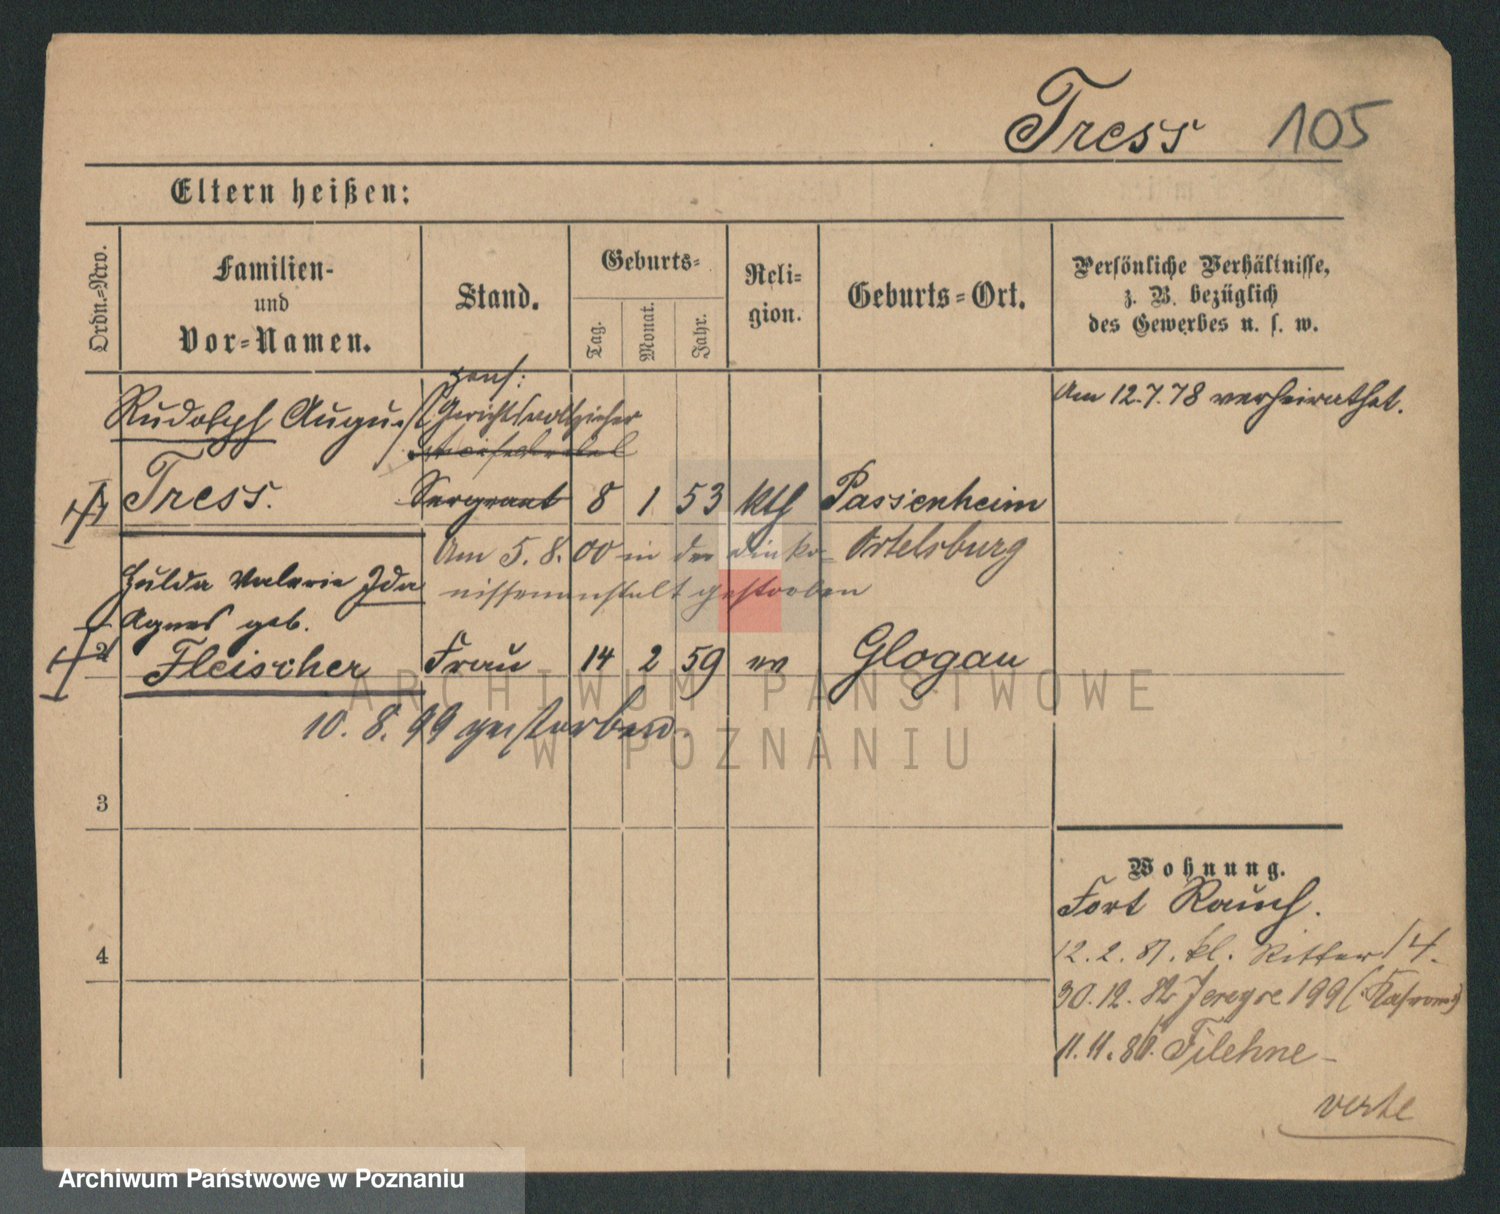 Tress 105
Eltern heißen:
Ordn.-Nro.
Familien-
und
Vor-Namen.
Stand.
Geburts-
Tag.
Monat.
Jahr.
Reli-
gion.
Geburts-Ort.
Persönliche Verhältnisse,
z. B. bezüglich
des Gewerbes u. s. w.
pens:
Rudolph August Gerichtsvollzieher
Am 12.7.78 verheirathet.
Tress. Sergeant 8 1 53 kth Passenheim
Am 5.8.00 in der Diako- Ortelsburg
nissenanstalt gestorben
Hulda Valerie Ida
Agnes geb.
2 Fleischer Frau 14 2 59 ev Glogau
10.8.99 gestorben.
3
4
Wohnung.
Fort Rauch.
12.2.81. kl. Ritter 14.
30.12.82 199
11.11.86. Filehne -
verte
ARCHIWUM PAŃSTWOWE
W POZNANIU
Archiwum Państwowe w Poznaniu